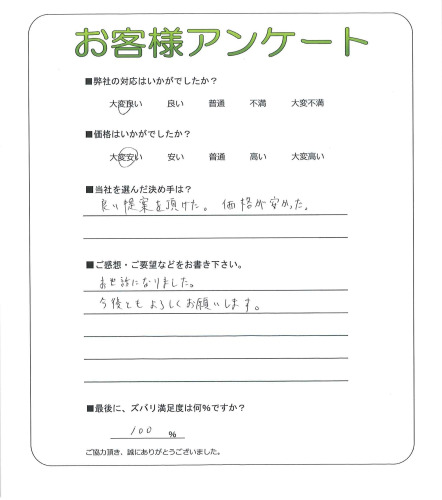 お客様アンケート
■弊社の対応はいかがでしたか？
大変良い 良い 普通 不満 大変不満
■価格はいかがでしたか？
大変安い 安い 普通 高い 大変高い
■当社を選んだ決め手は？
良い提案を頂けた。 価格が安かった。
■ご感想・ご要望などをお書き下さい。
お世話になりました。
今後ともよろしくお願いします。
■最後に、ズバリ満足度は何％ですか？
100 ％
ご協力頂き、誠にありがとうございました。